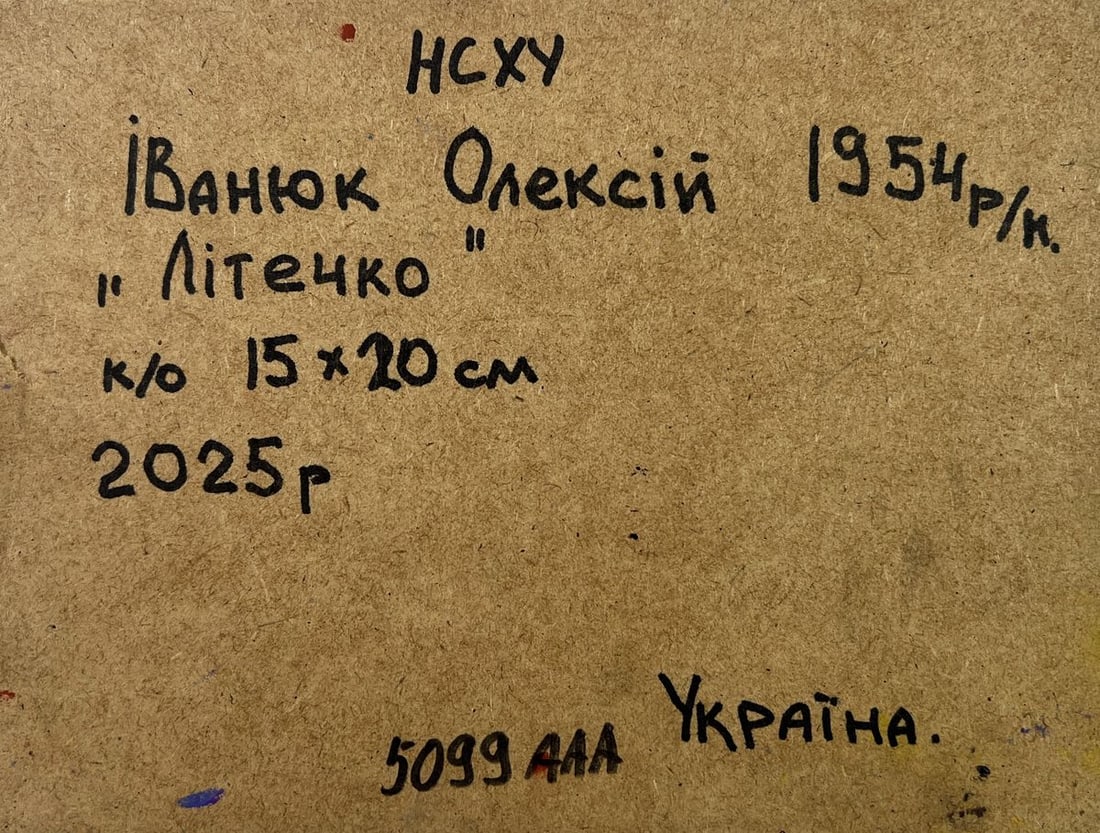 НСХУ
Іванюк Олексій 1954 р/н.
„Літечко"
к/о 15 х 20 см
2025 р
Україна.
5099 ААА